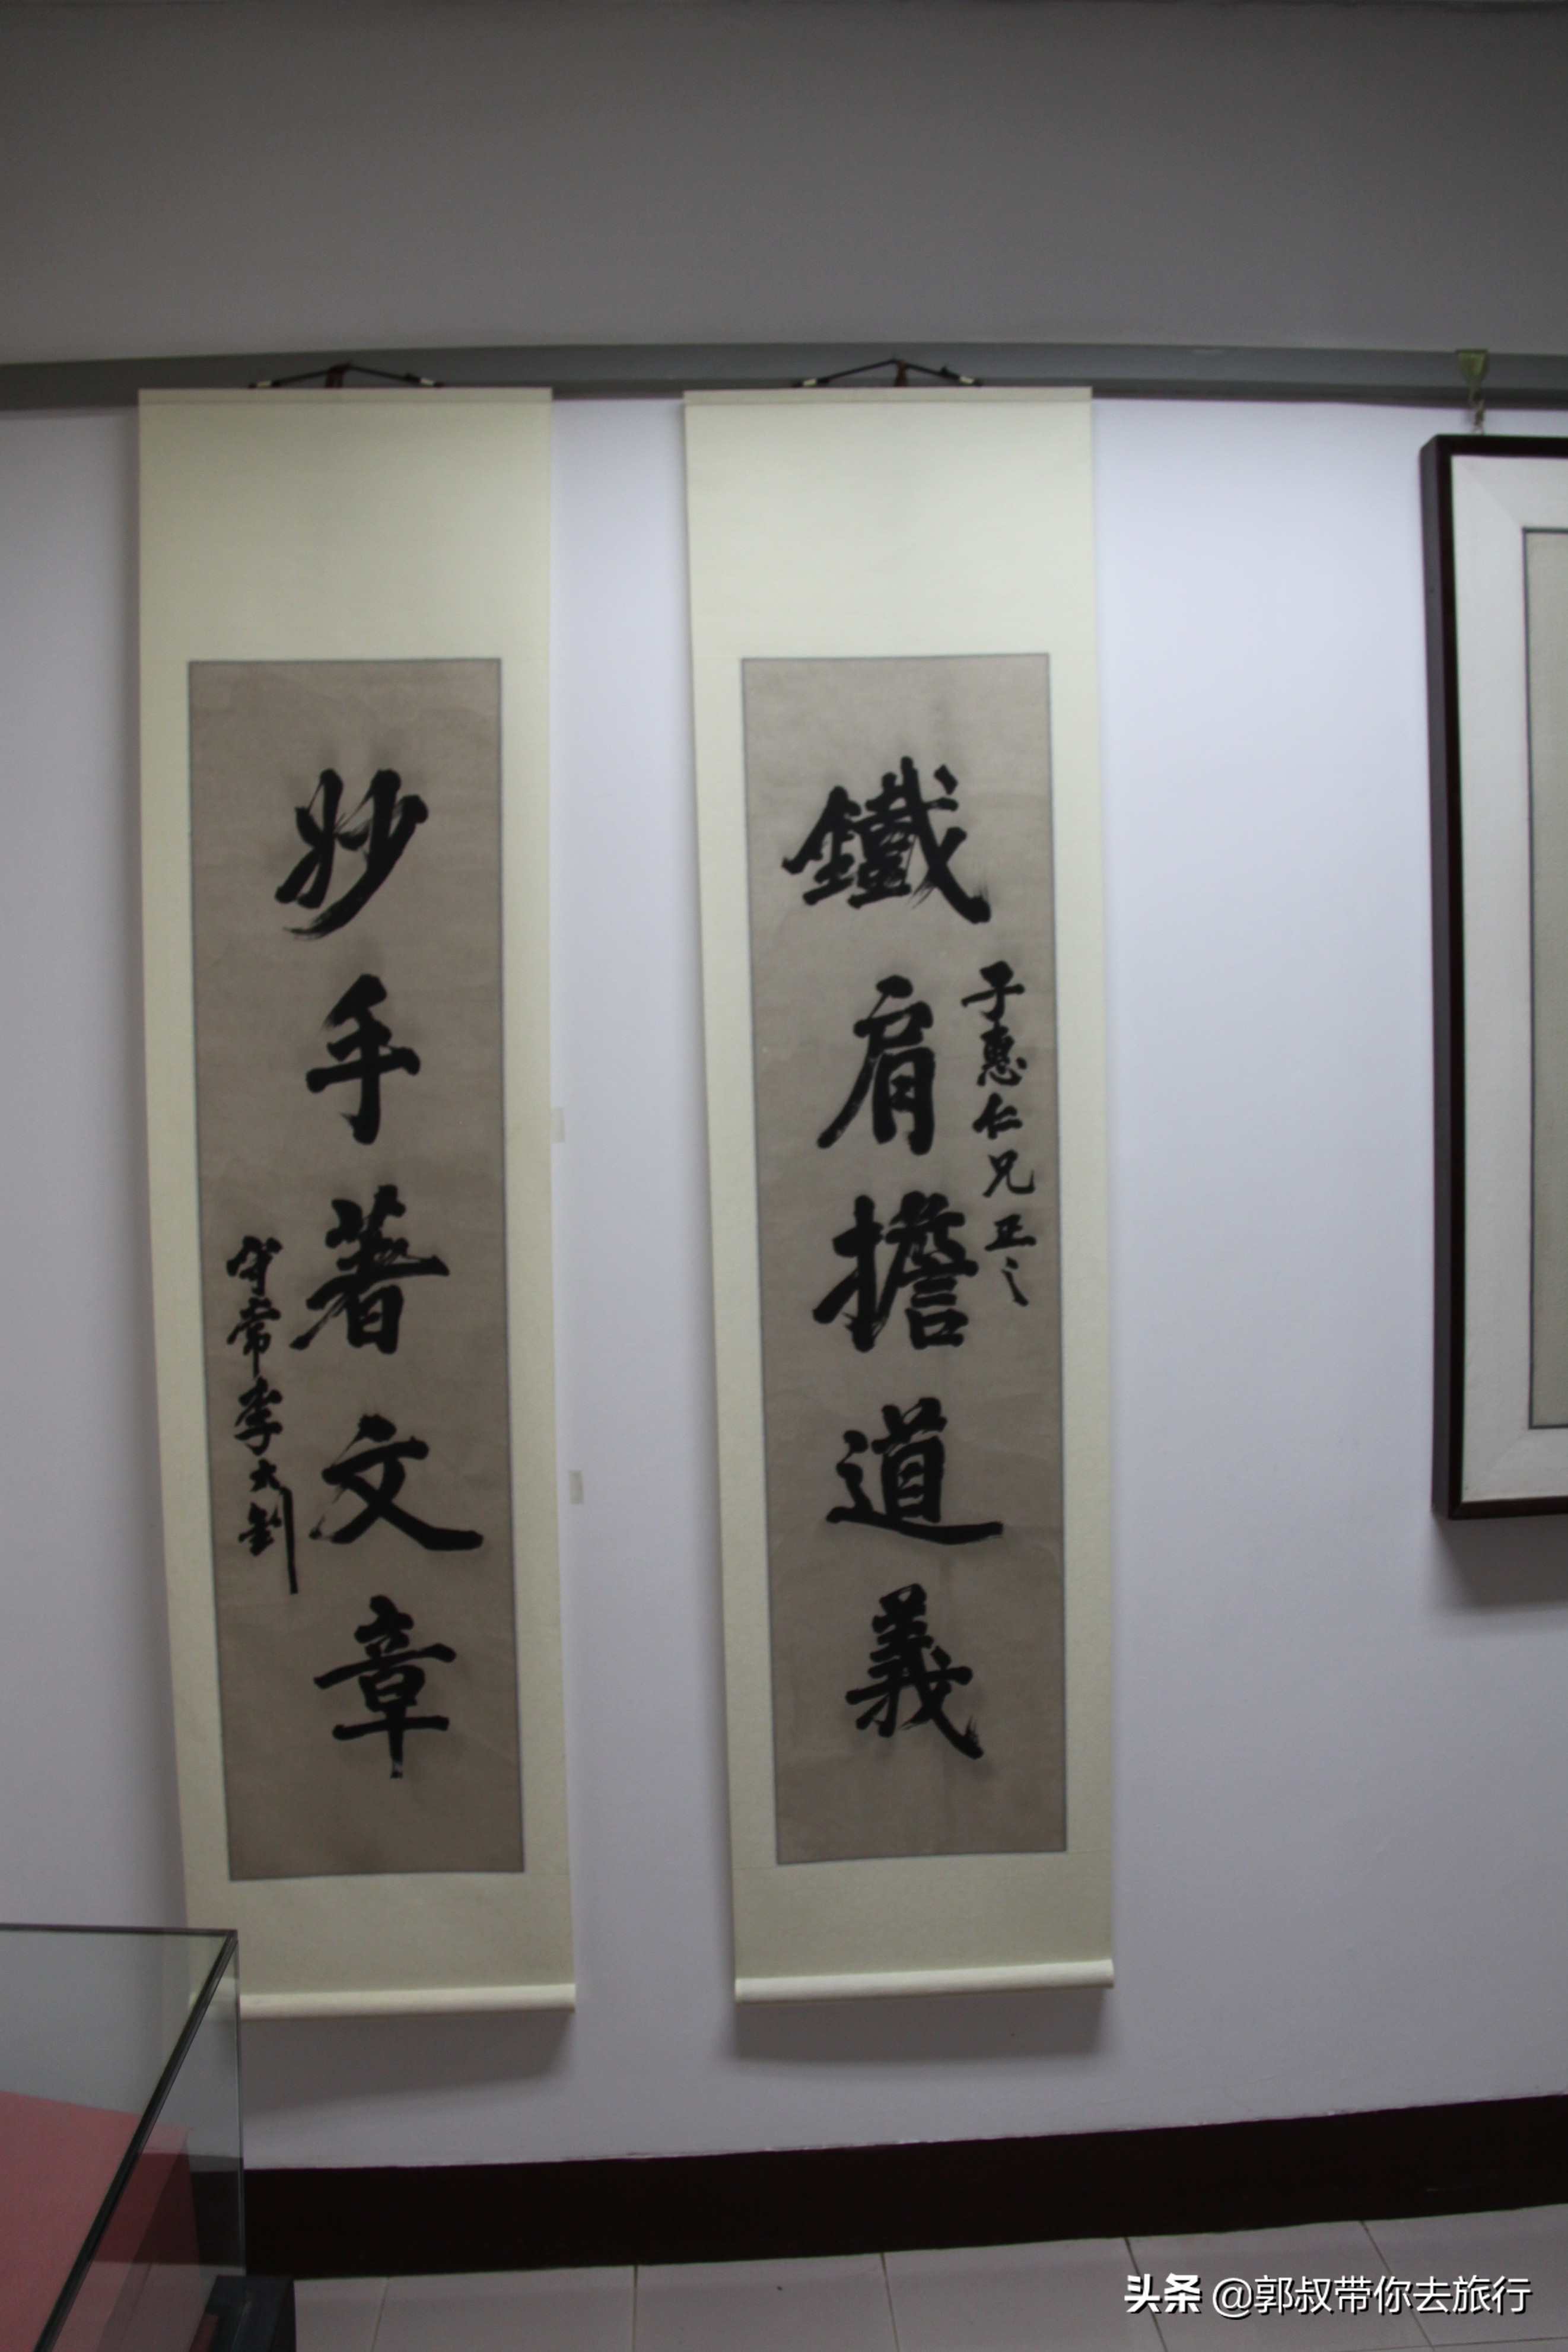 鐵肩擔道義
子惠仁兄正之
妙手著文章
守常李大釗
头条 @郭叔带你去旅行